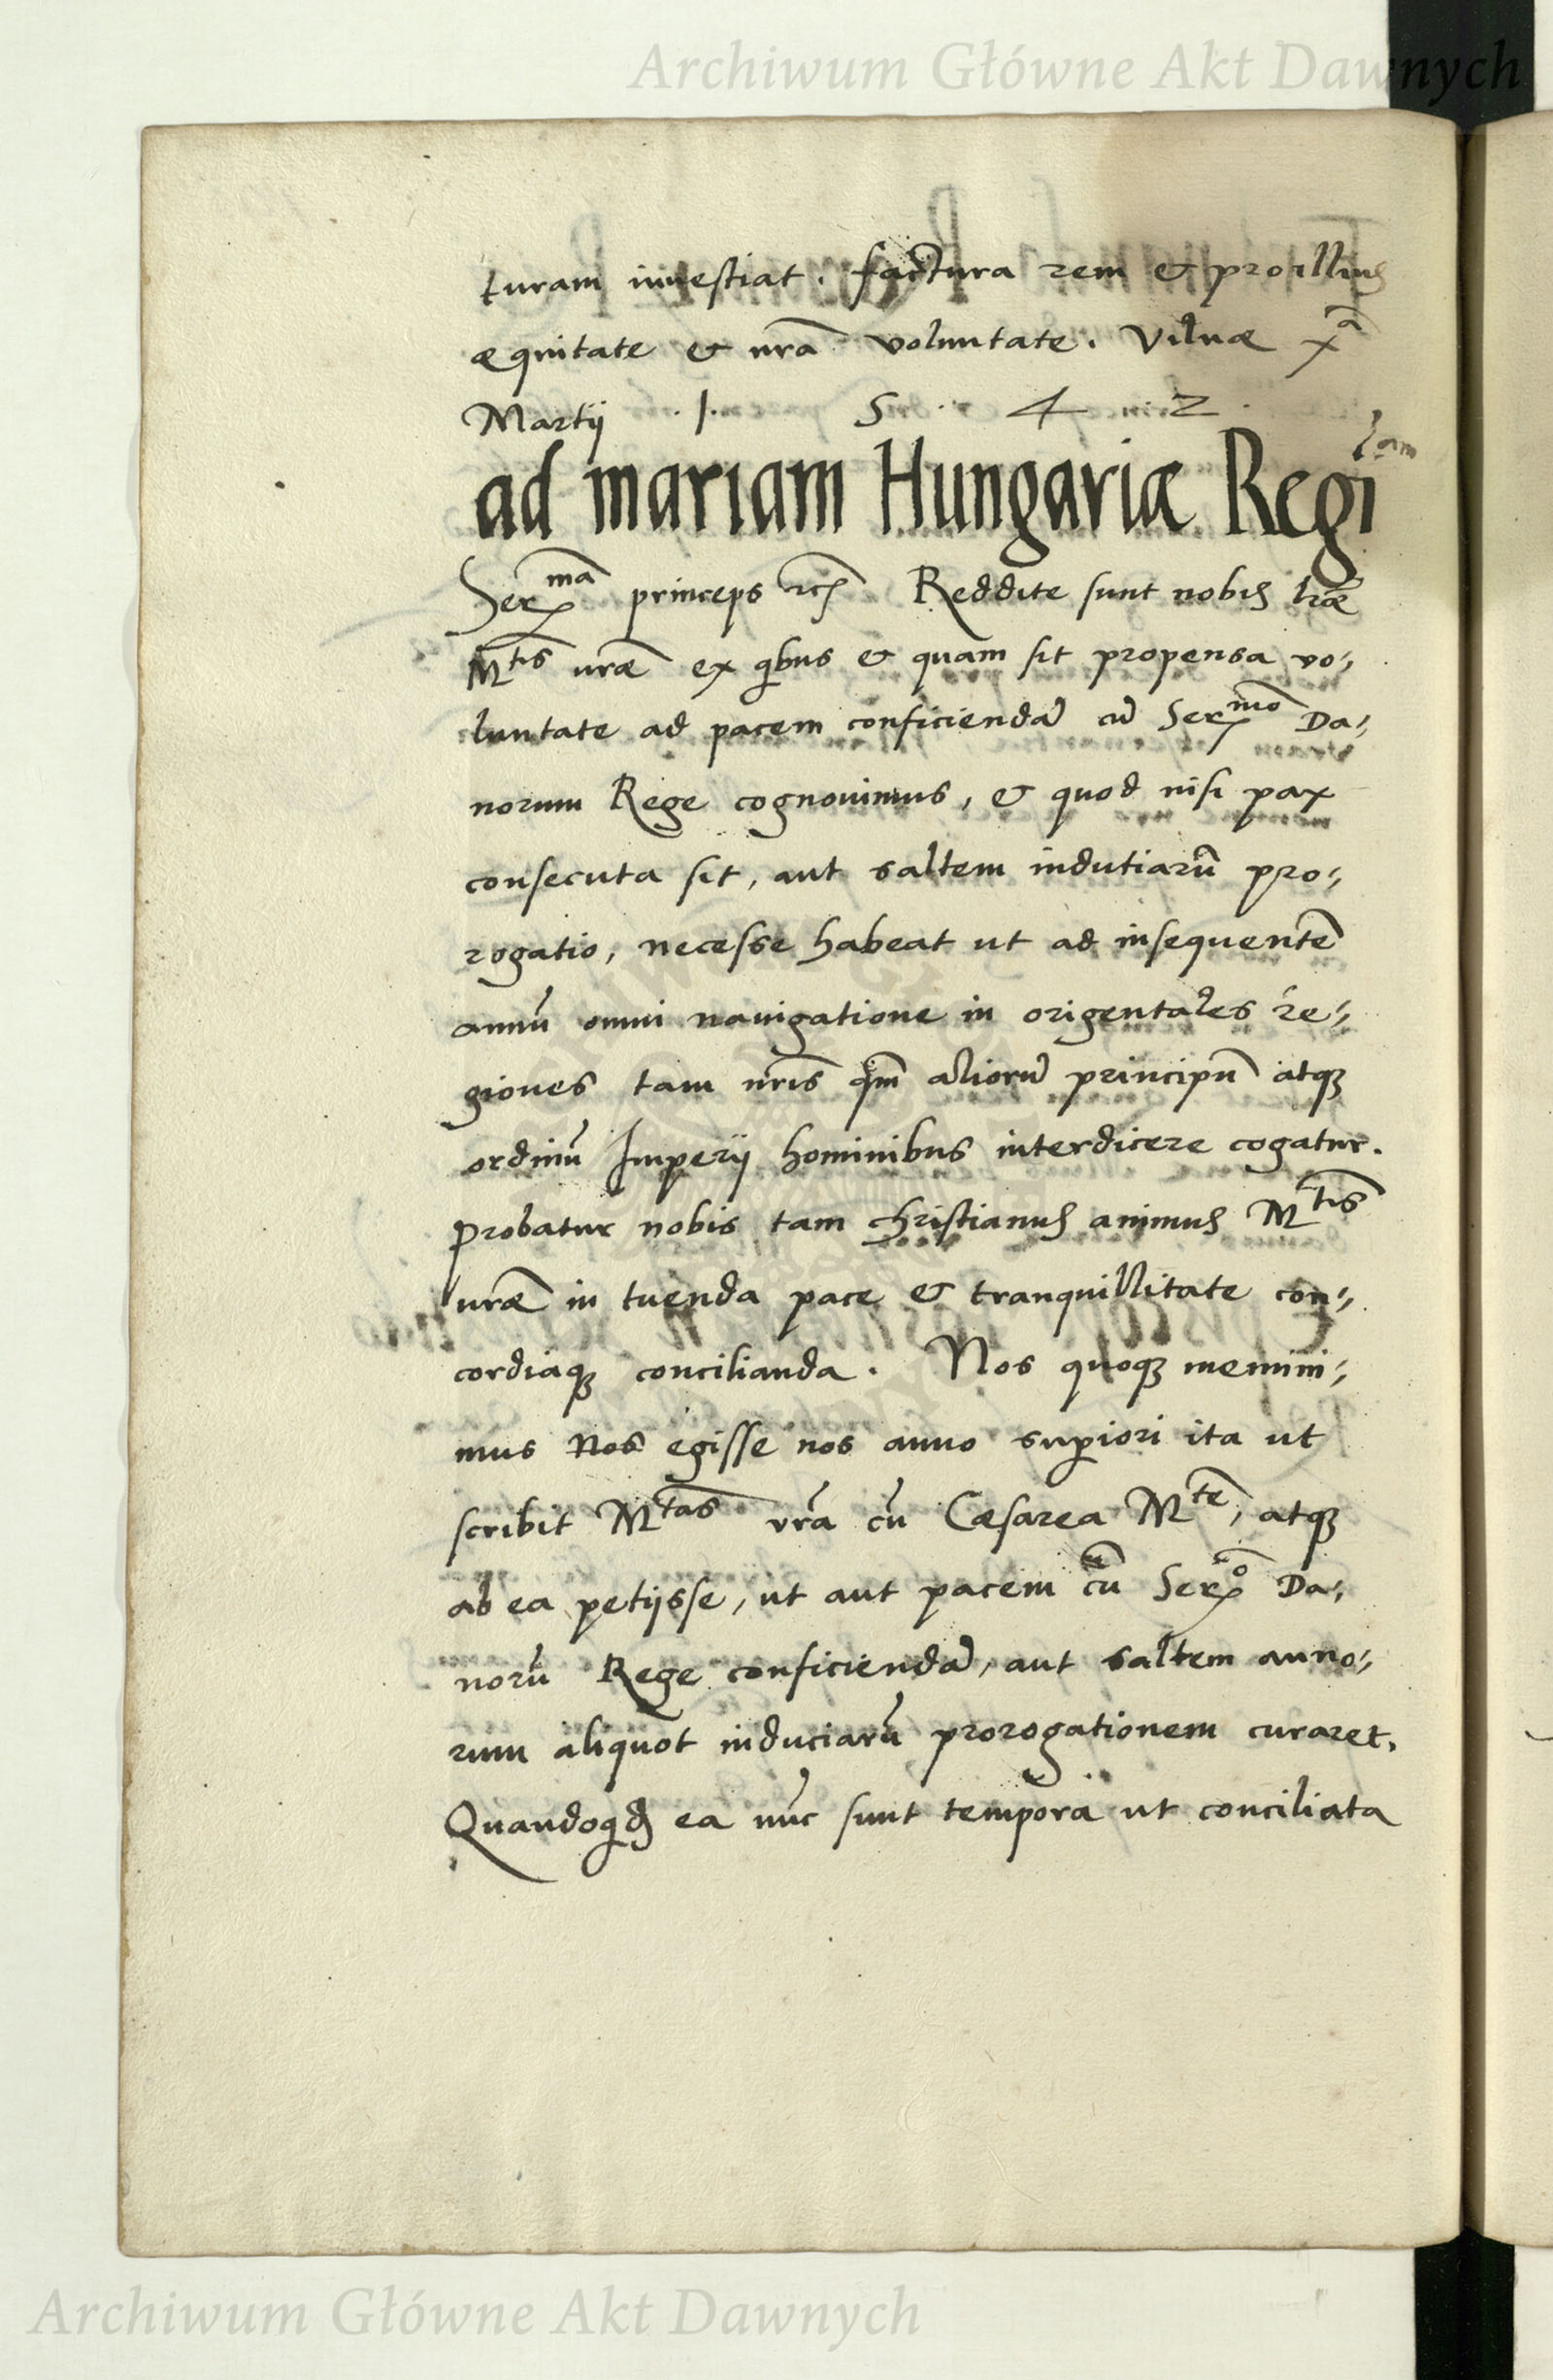 Archiwum Główne Akt Dawnych
turam inuestiat. factura rem & pro illius
æquitate & nrã voluntate. Vilnæ xa
Martij .1. 5. 4. 2.
ad mariam Hungariæ Regi
Serma princeps Reddite sunt nobis lræ
Mtis vræ ex qbus & quam sit propensa vo-,
luntate ad pacem conficiendã cũ Sermo Da-,
norum Rege cognouimus, & quod nisi pax
consecuta sit, aut saltem indutiarũ pro-,
rogatio, necesse habeat ut ad insequentẽ
annũ omni nauigatione in origentales re-,
giones tam nris qm aliorũ principũ atqꝫ
ordinũ Imperij hominibus interdicere cogatur.
Probatur nobis tam christianus animus Mtis
vræ in tuenda pace & tranquillitate con-,
cordiaqꝫ concilianda. Nos quoqꝫ memini-,
mus Nos egisse nos anno supiori ita ut
scribit Mtas vrã cũ Cæsarea Mte, atqꝫ
ab ea petijsse, ut aut pacem cũ Sero Da-,
norũ Rege conficiendã, aut saltem anno-,
rum aliquot induciarũ prorogationem curaret.
Quandoqd ea nũc sunt tempora ut conciliata
Archiwum Główne Akt Dawnych